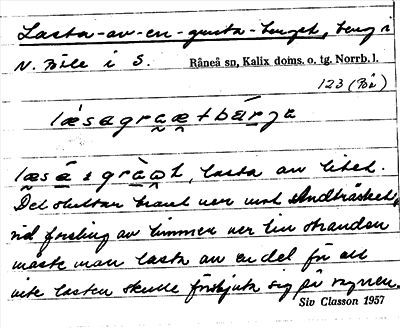 Lasta-av-en-gusta-berget, berg i
N. Böle i S. Råneå sn, Kalix doms. o. tg. Norrb. l.
123 (Bä)
læsagraætbárja
læsa graat, lasta av litet.
Det sluttar brant ner mot Andträsket,
vid forsling av timmer ner till stranden
måste man lasta av en del för att
inte lasten skulle förskjuta sig på vägen.
Siv Classon 1957